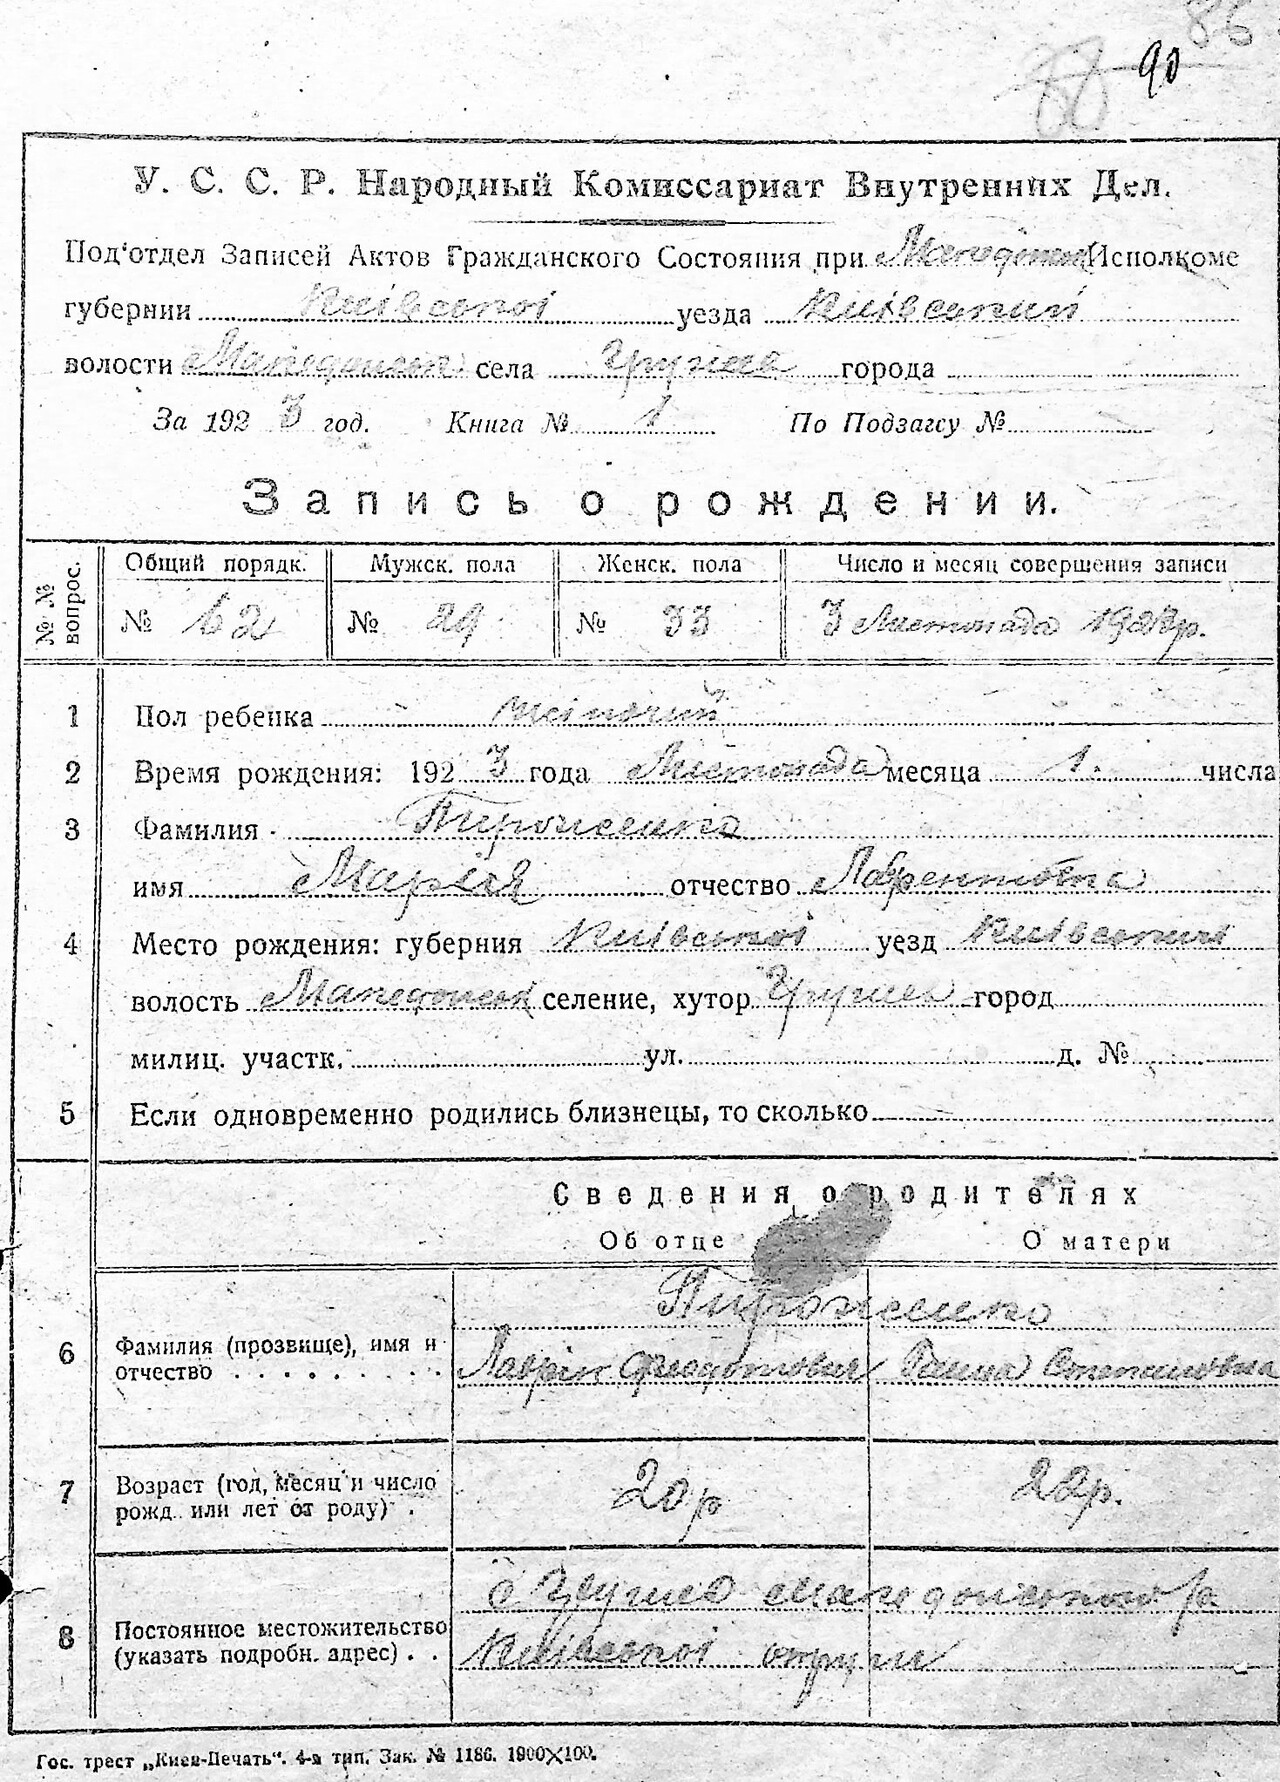 86
88
90
У. С. С. Р. Народный Комиссариат Внутренних Дел.
Под'отдел Записей Актов Гражданского Состояния при Македонськ Исполкоме
губернии Київської уезда Київський
волости Македонськ села города
За 1923 год. Книга № 1 По Подзагсу №
Запись о рождении.
№ № вопрос.
Общий порядк. Мужск. пола Женск. пола Число и месяц совершения записи
№ 62 № 29 № 33 3 Листопада 1923р.
1 Пол ребенка жіночий
2 Время рождения: 1923 года Листопада месяца 1. числа
3 Фамилия Пироженко
имя Марія отчество Лаврентовна
4 Место рождения: губерния Київської уезд Київський
волость Македонськ селение, хутор город
милиц. участк. ул. д. №
5 Если одновременно родились близнецы, то сколько
Сведения о родителях
Об отце О матери
Пироженко
6 Фамилия (прозвище), имя и
отчество Лаврін Федотович Степановна
7 Возраст (год, месяц и число
рожд. или лет от роду) 20р 22р.
с Македонського р.
8 Постоянное местожительство
(указать подробн. адрес) Київської округи
Гос. трест „Киев-Печать“. 4-я тип. Зак. № 1186. 1900×100.